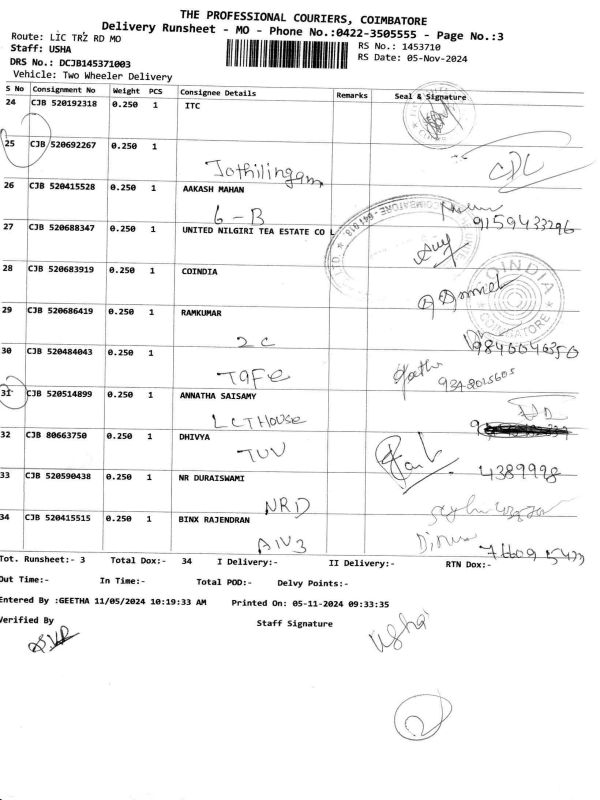 THE PROFESSIONAL COURIERS, COIMBATORE
Delivery Runsheet - MO - Phone No.:0422-3505555 - Page No.:3
Route: LIC TRZ RD MO
RS No.: 1453710
Staff: USHA
RS Date: 05-Nov-2024
DRS No.: DCJB145371003
Vehicle: Two Wheeler Delivery
S No Consignment No Weight PCS Consignee Details Remarks Seal & Signature
24 CJB 520192318 0.250 1 ITC
25 CJB 520692267 0.250 1
Jothilingam
26 CJB 520415528 0.250 1 AAKASH MAHAN
6-B
9159433296
27 CJB 520688347 0.250 1 UNITED NILGIRI TEA ESTATE CO L
28 CJB 520683919 0.250 1 COINDIA
COINDIA
COIMBATORE
29 CJB 520686419 0.250 1 RAMKUMAR
2C
30 CJB 520484043 0.250 1
TAFE
31 CJB 520514899 0.250 1 ANNATHA SAISAMY
LCT House
32 CJB 80663750 0.250 1 DHIVYA
TUV
4389998
33 CJB 520590438 0.250 1 NR DURAISWAMI
NRD
34 CJB 520415515 0.250 1 BINX RAJENDRAN
Tot. Runsheet:- 3 Total Dox:- 34 I Delivery:- II Delivery:- RTN Dox:-
Out Time:- In Time:- Total POD:- Delvy Points:-
Entered By :GEETHA 11/05/2024 10:19:33 AM Printed On: 05-11-2024 09:33:35
Verified By
Staff Signature
Usha